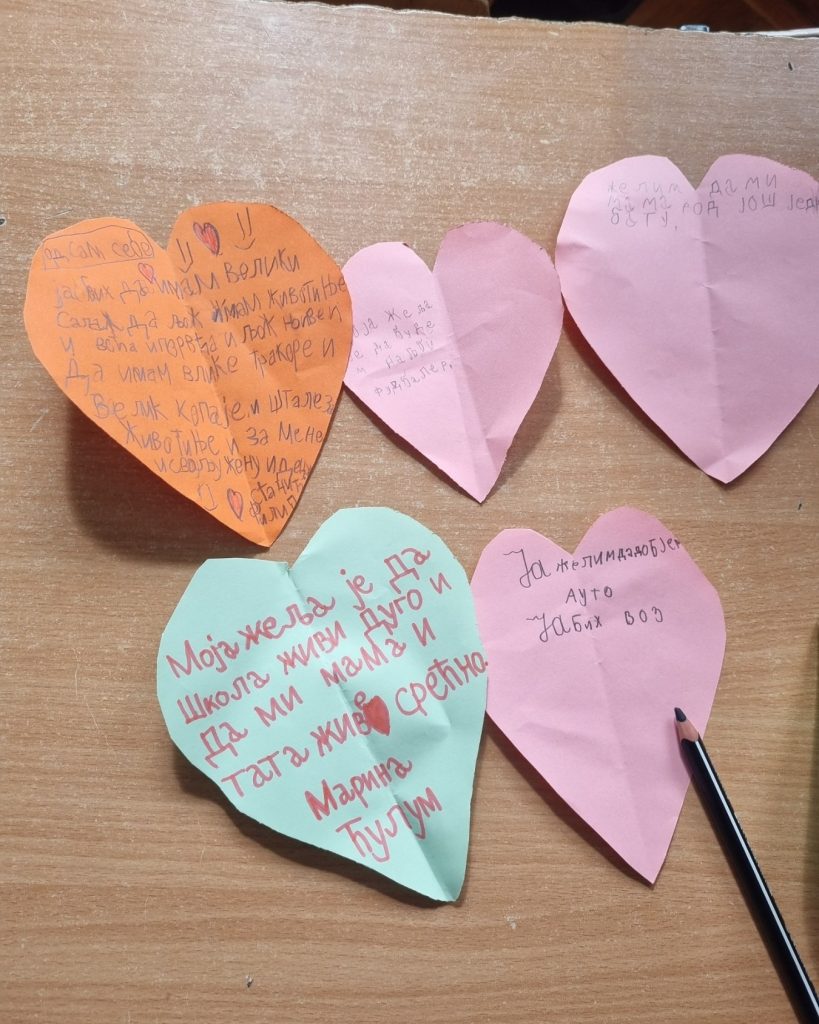 сам себе
ја бих да имам велики
Салаш да љок имам животиње
и воћа и поврћа и љок њиве и
Да имам влике тракоре и
Велик копаје и штале за
Животиње и за мене
и свољу жену и децу
Филип
оја же да
се да буде
фудбалер.
желим да ми
мама род још једн
бату,
Моја жеља је да
школа живи дуго и
да ми мама и
тата живе срећно.
Марина
Ћулум
Ја желим да добјем
ауто
Ја бих воз